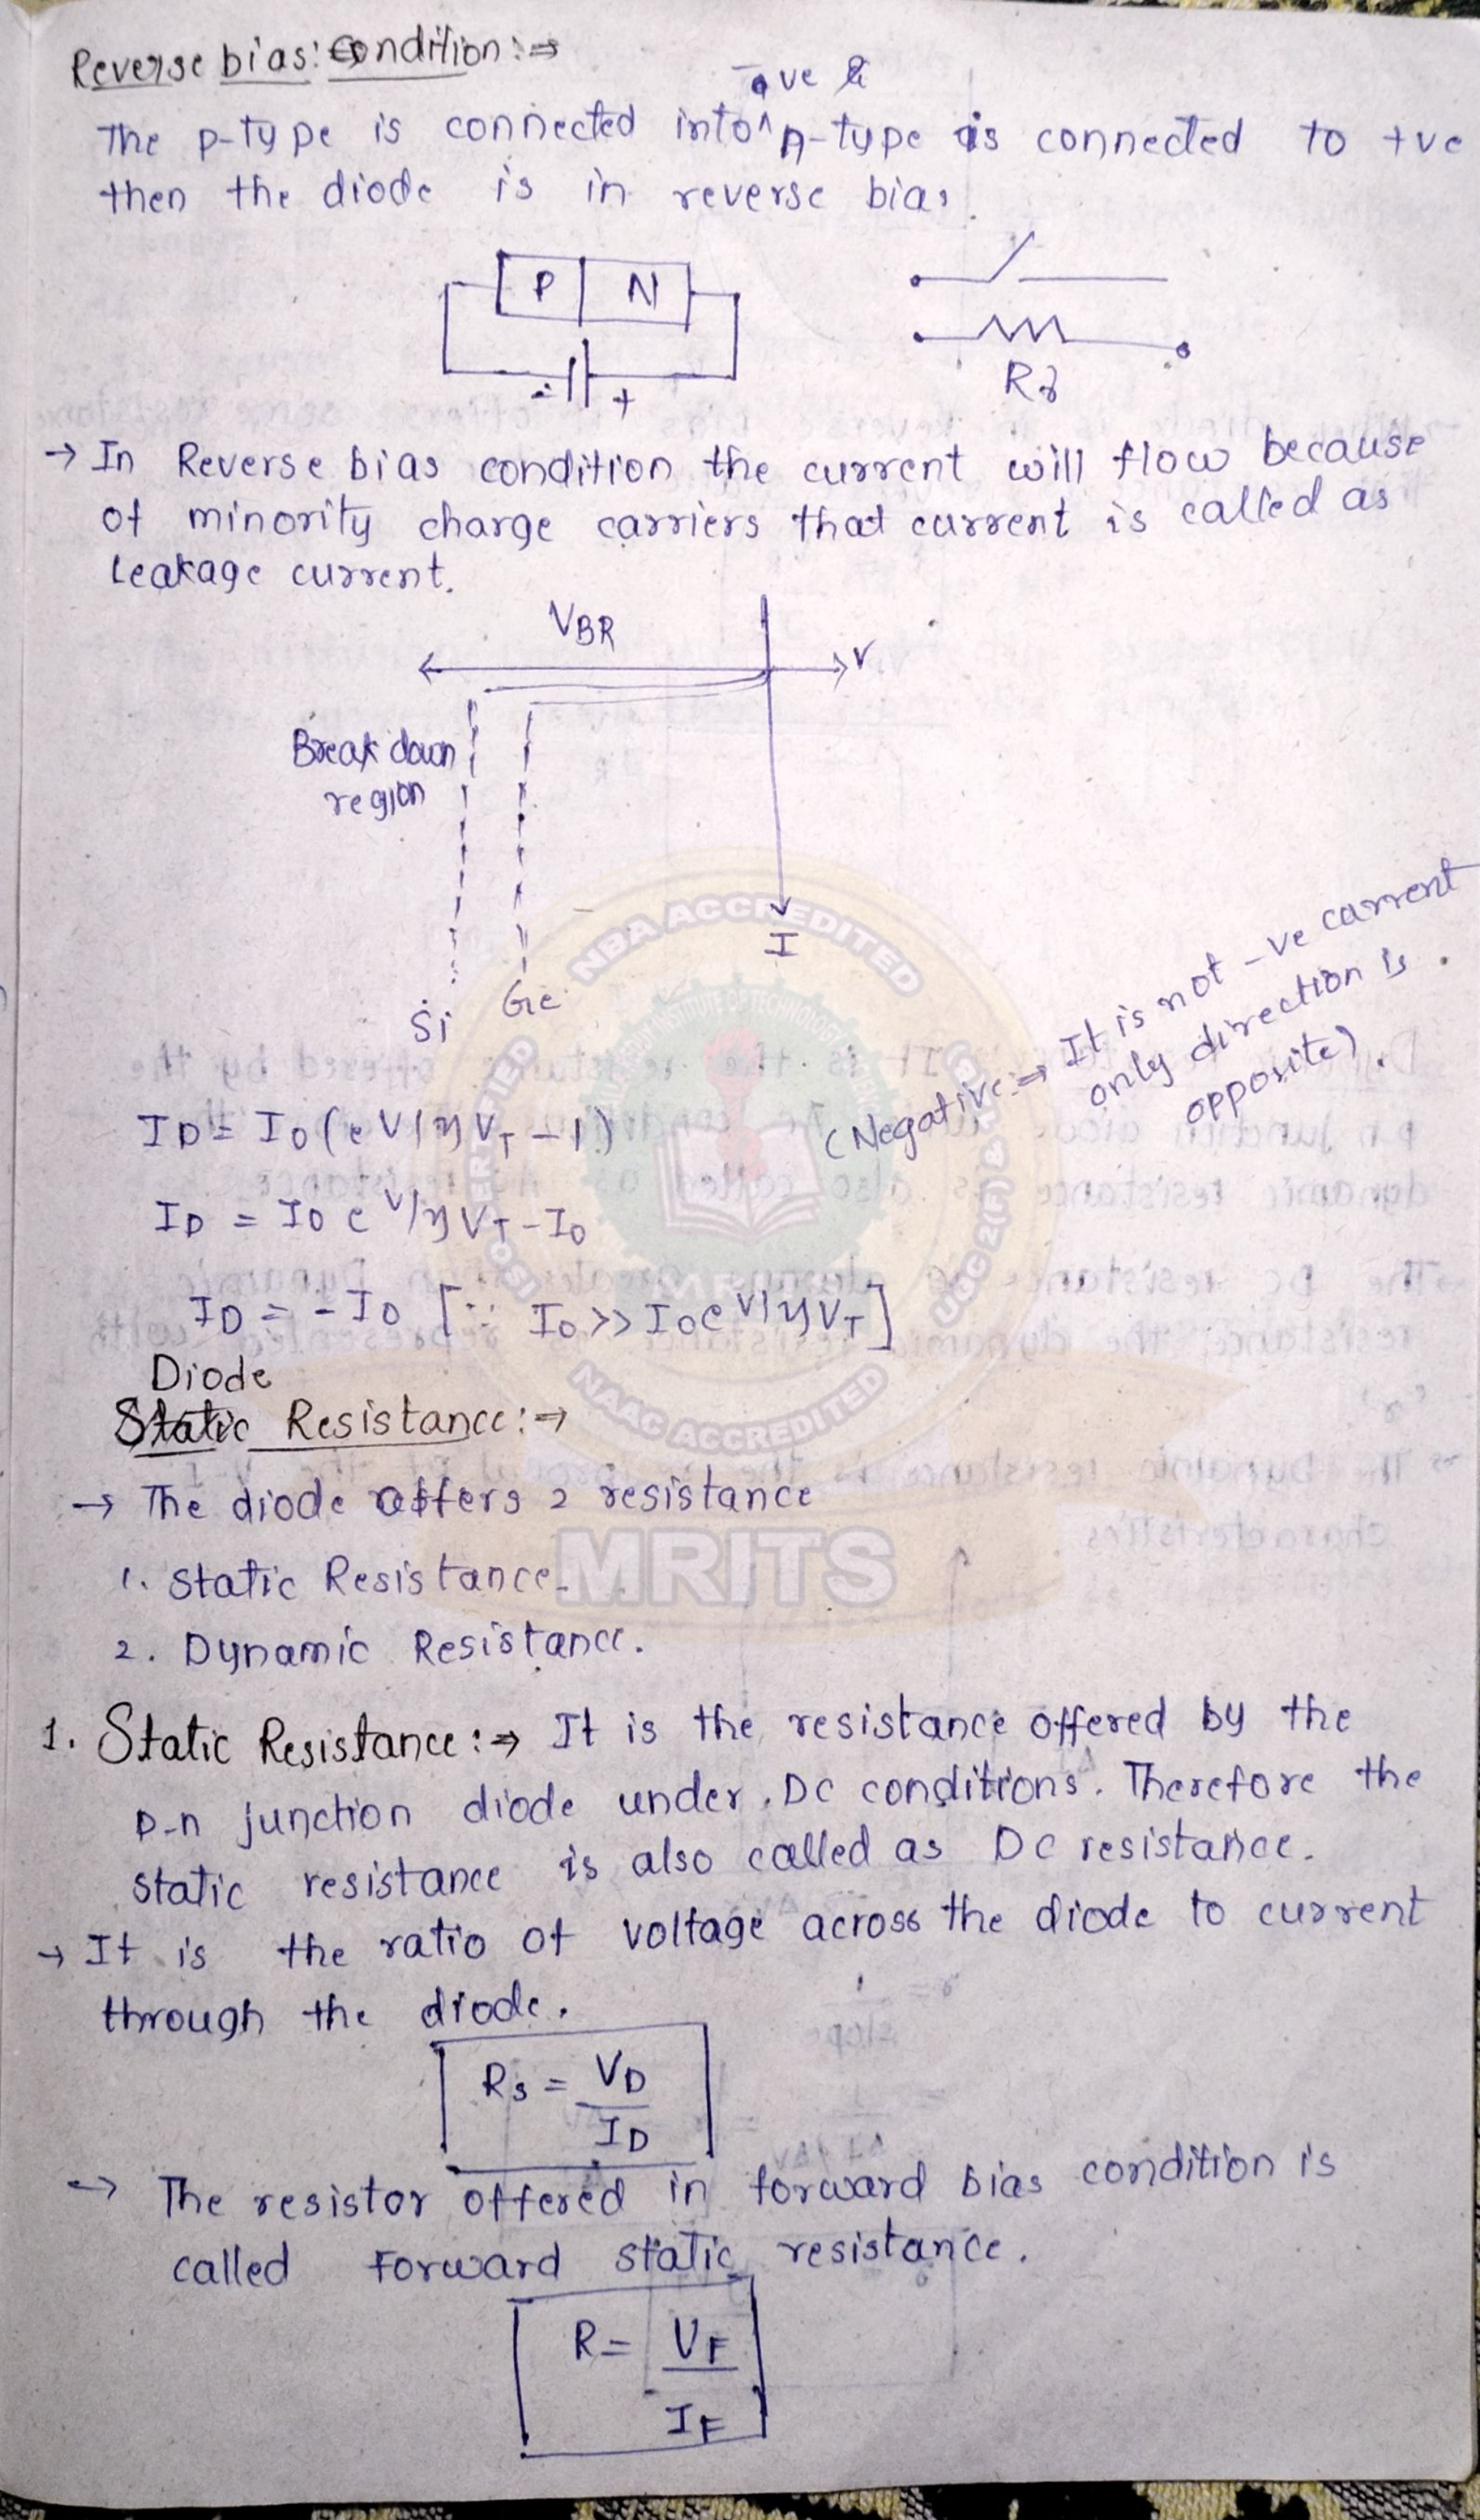 Reverse bias: condition :⇒
-ve &
The p-type is connected into ^ n-type is connected to +ve
then the diode is in reverse bias.
P N
- +
Rr
→ In Reverse bias condition the current will flow because
of minority charge carriers that current is called as
Leakage current.
VBR
V
Break down
region
I
Si Ge
(Negative :⇒ It is not -ve current
only direction is
opposite).
ID = I0 (e V/η VT - 1)
ID = I0 e V/η VT - I0
ID = - I0 [∵ I0 >> I0 e V/η VT]
Diode
Static Resistance :⇒
→ The diode offers 2 resistance
1. Static Resistance.
2. Dynamic Resistance.
1. Static Resistance :⇒ It is the resistance offered by the
p-n junction diode under DC conditions. Therefore the
static resistance is also called as DC resistance.
→ It is the ratio of voltage across the diode to current
through the diode.
Rs = VD
ID
→ The resistor offered in forward bias condition is
called Forward static resistance.
R = VF
IF
NBA ACCREDITED
UGC 2(F) &
NAAC ACCREDITED
MRITS
MRITS